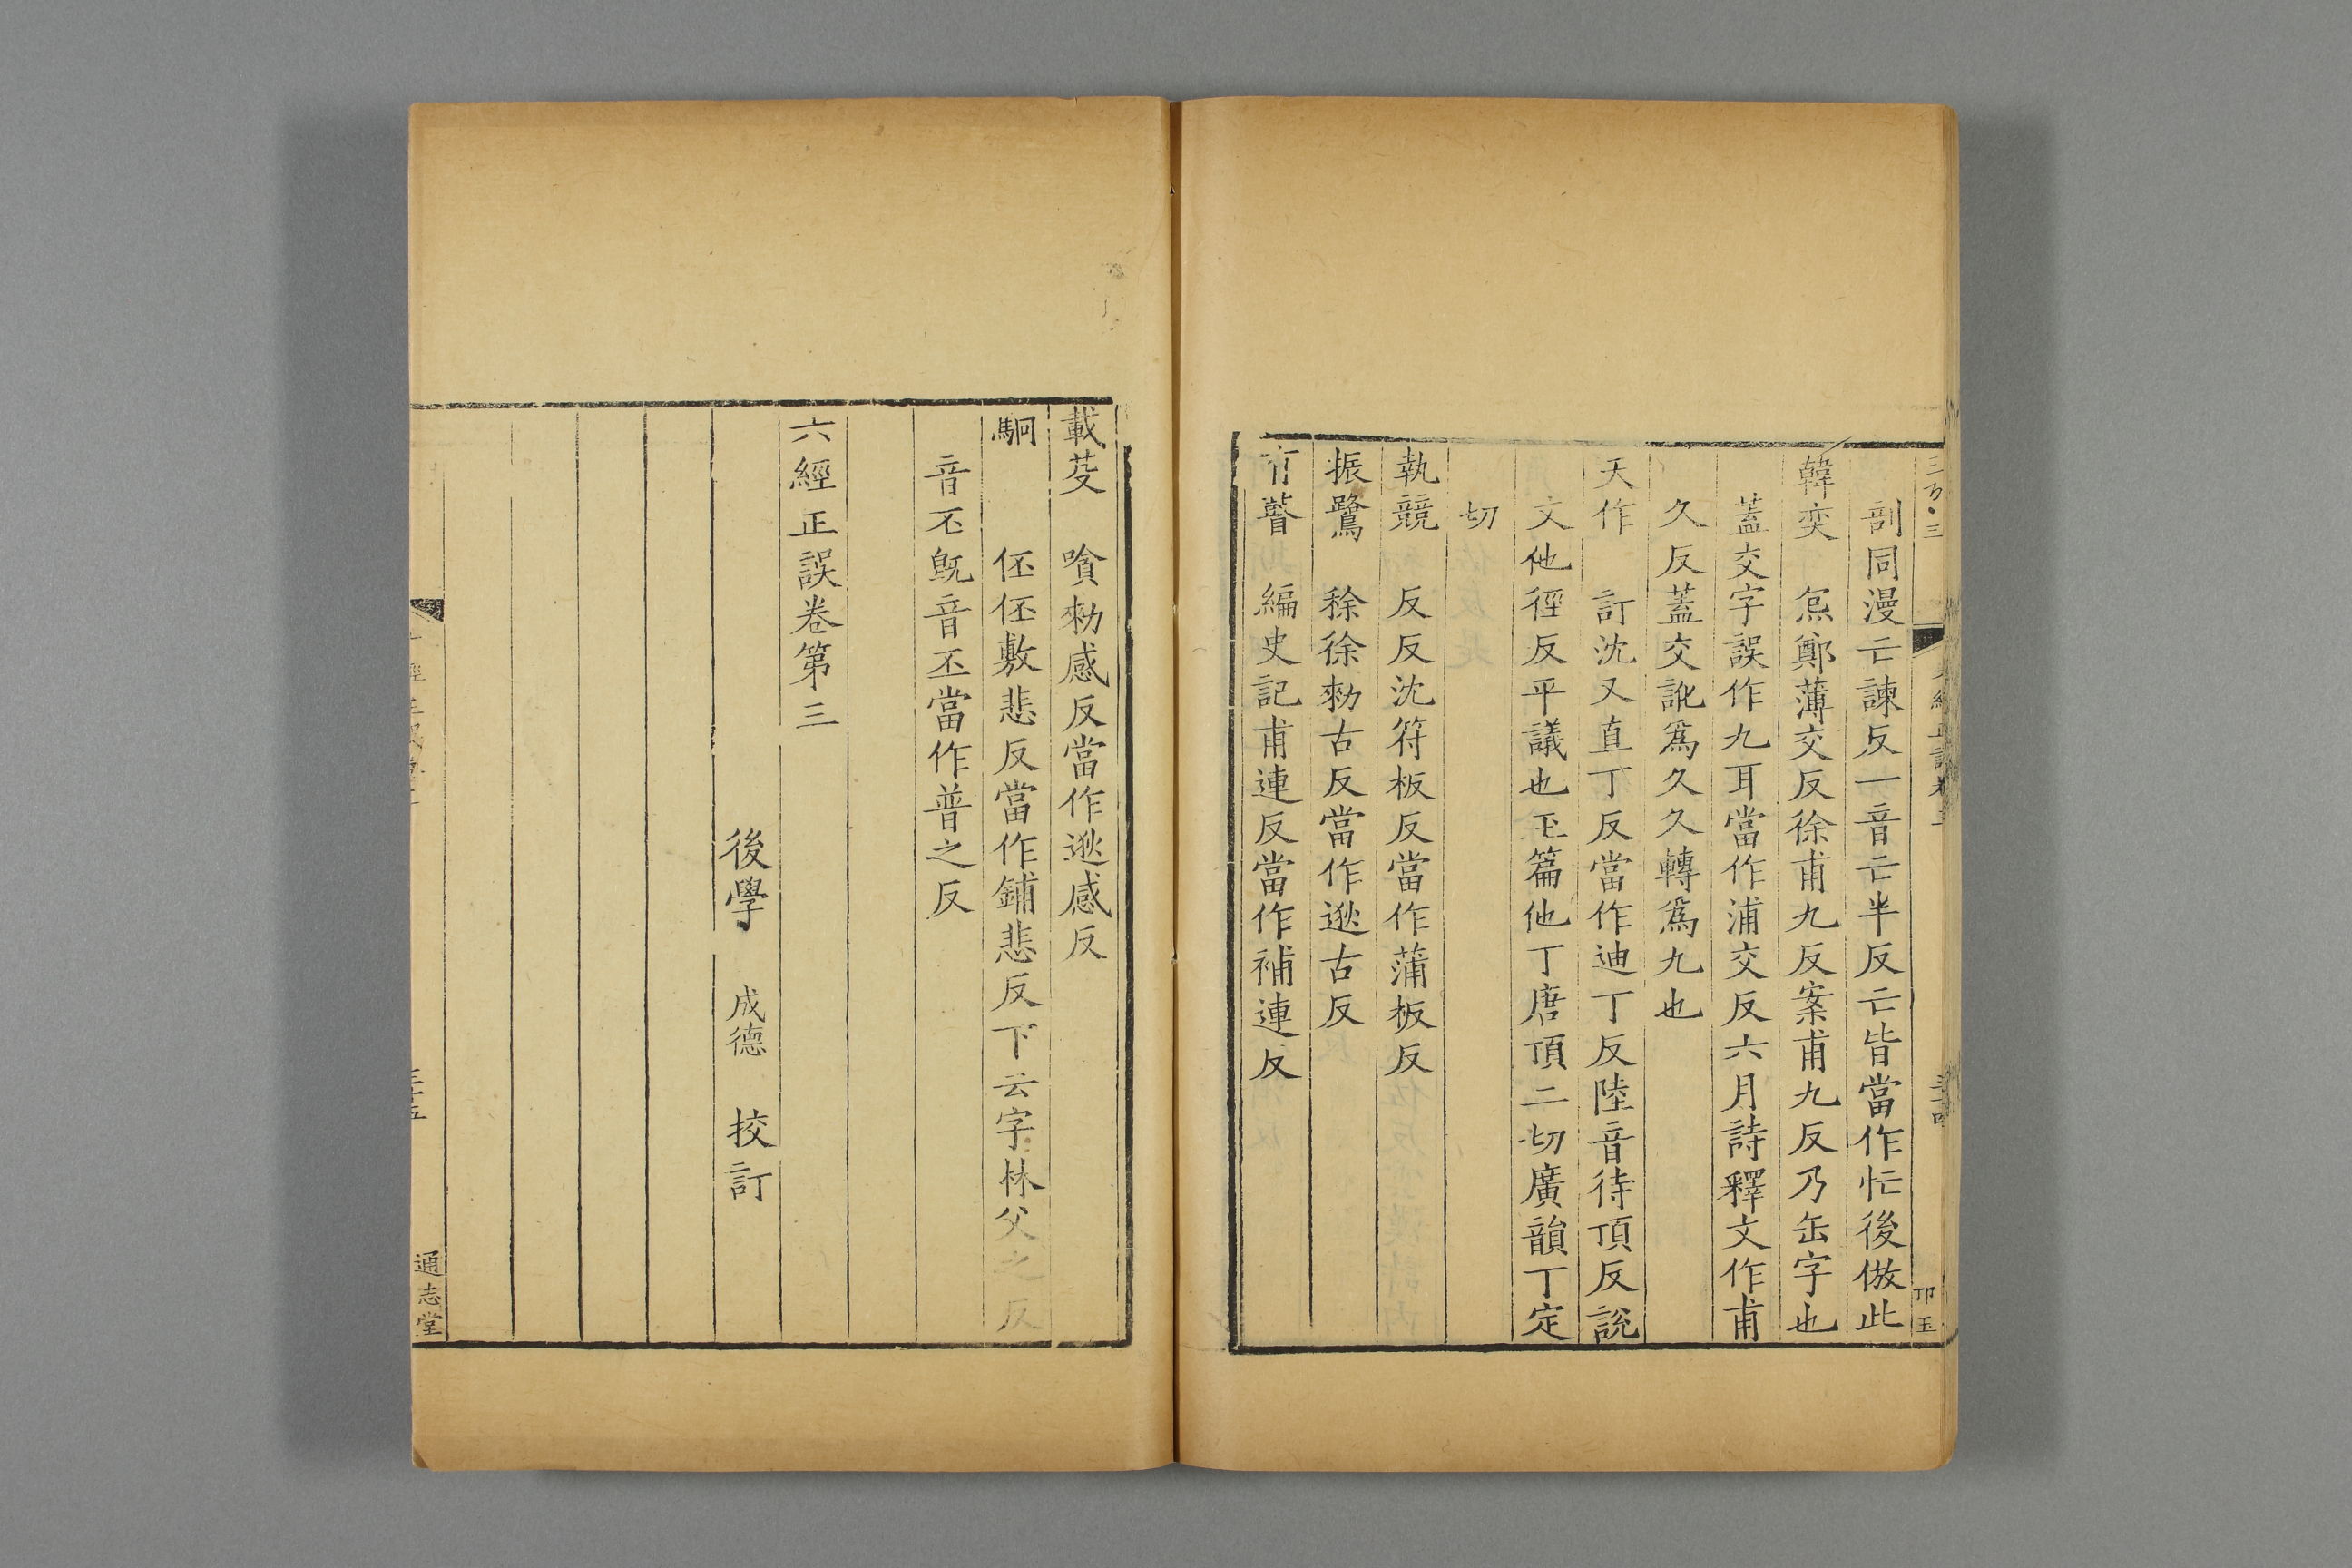 剖同漫亡諫反一音亡半反亡皆當作忙後倣此
韓奕 炰鄭薄交反徐甫九反案甫九反乃缶字也
蓋交字誤作九耳當作浦交反六月詩釋文作甫
久反蓋交訛為久久轉為九也
天作 訂沈又直丁反當作迪丁反陸音待頂反說
文他徑反平議也玉篇他丁唐頂二切廣韻丁定
切
執競 反反沈符板反當作蒲板反
振鷺 稌徐勑古反當作逖古反
有瞽 編史記甫連反當作補連反
載芟 嗿勑感反當作逖感反
駉 伾伾敷悲反當作鋪悲反下云字林父之反
音丕旣音丕當作普之反
六經正誤卷第三
後學 成德 挍訂
通志堂